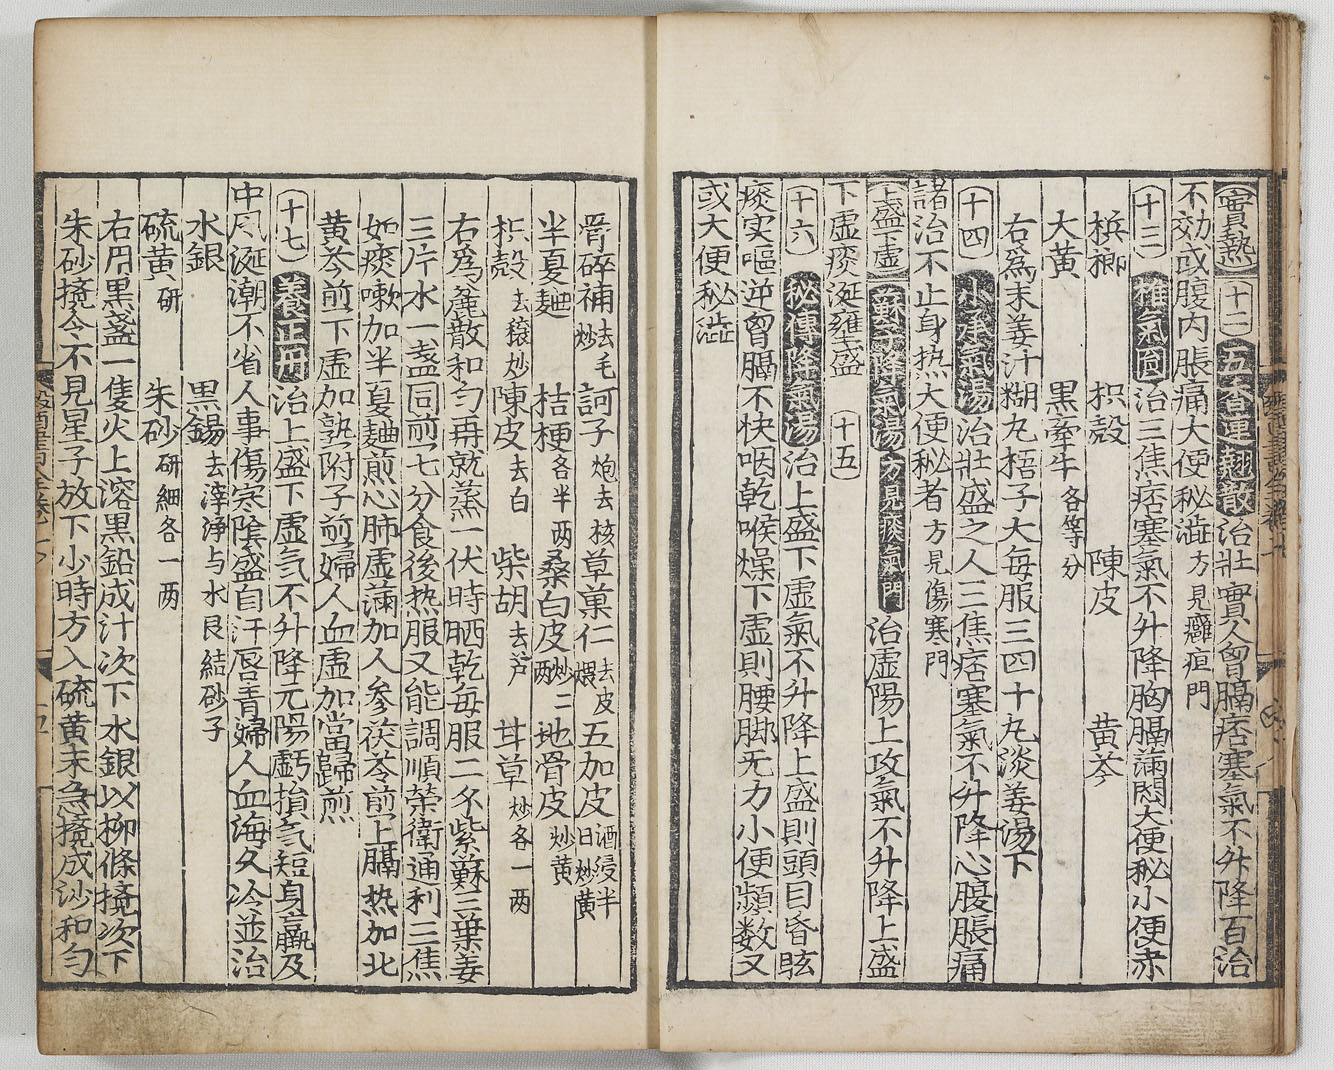 實熱 十二 五香連翹散 治壯實人胷膈痞塞氣不升降百治
不効或腹内脹痛大便秘澁方見癰疽門
十三 推氣圎 治三焦痞塞氣不升降胸膈滿悶大便秘小便赤
檳榔 枳殼 陳皮 黄芩
大黄 黒牽牛各等分
右爲末姜汁糊丸梧子大每服三四十丸淡姜湯下
十四 小承氣湯 治壯盛之人三焦痞塞氣不升降心腹脹痛
諸治不止身热大便秘者方見傷寒門
上盛下虛 蘇子降氣湯方見痰氣門 治虛陽上攻氣不升降上盛
下虛痰涎壅盛 十五
十六 秘傳降氣湯 治上盛下虛氣不升降上盛則頭目昏眩
痰实嘔逆胷膈不快咽乾喉燥下虛則腰脚无力小便頻数又
或大便秘澁
骨碎補去毛炒 訶子炮去核 草菓仁去皮煨 五加皮酒浸半日炒黄
半夏麯 桔梗各半两 桑白皮炒二两 地骨皮炒黄
枳殼去穰炒 陳皮去白 柴胡去芦 甘草炒各一两
右爲麁散和匀再就蒸一伏時晒乾每服二不紫蘇三葉姜
三片水一盞同煎七分食後热服又能調順榮衛通利三焦
如痰嗽加半夏麯煎心肺虛滿加人参茯苓煎上膈热加北
黄芩煎下虛加熟附子煎婦人血虛加當歸煎
十七 養正丹 治上盛下虛氣不升降元陽虧損氣短身羸及
中風涎潮不省人事傷寒陰盛自汗唇青婦人血海久冷並治
水銀 黒錫去滓淨与水艮結砂子
硫黄研 朱砂研細各一两
右用黒盞一隻火上溶黒鉛成汁次下水銀以柳條攪次下
朱砂攪令不見星子放下少時方入硫黄末急攪成沙和匀